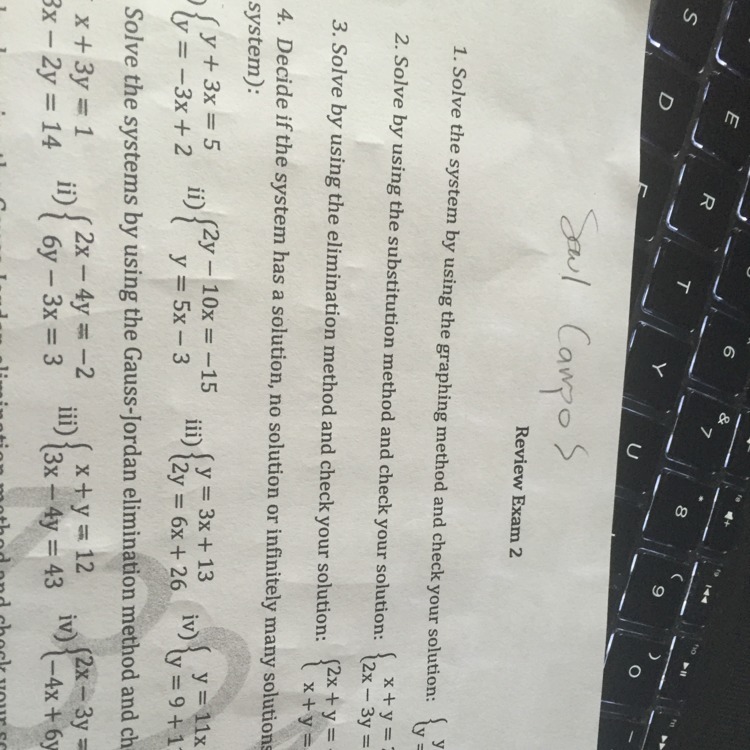 Saul Campos
Review Exam 2
1. Solve the system by using the graphing method and check your solution: { y
y =
2. Solve by using the substitution method and check your solution: { x + y =
2x − 3y =
3. Solve by using the elimination method and check your solution: { 2x + y =
x + y =
4. Decide if the system has a solution, no solution or infinitely many solutions
system):
) { y + 3x = 5 ii) { 2y − 10x = −15 iii) { y = 3x + 13 iv) { y = 11x
y = −3x + 2 y = 5x − 3 2y = 6x + 26 y = 9 + 1
Solve the systems by using the Gauss-Jordan elimination method and ch
x + 3y = 1 ii) { 2x − 4y = −2 iii) { x + y = 12 iv) { 2x − 3y =
3x − 2y = 14 6y − 3x = 3 3x − 4y = 43 −4x + 6y
elimination method and check your so
S D E R F T Y U
6 & 7 * 8 ( 9 ) 0